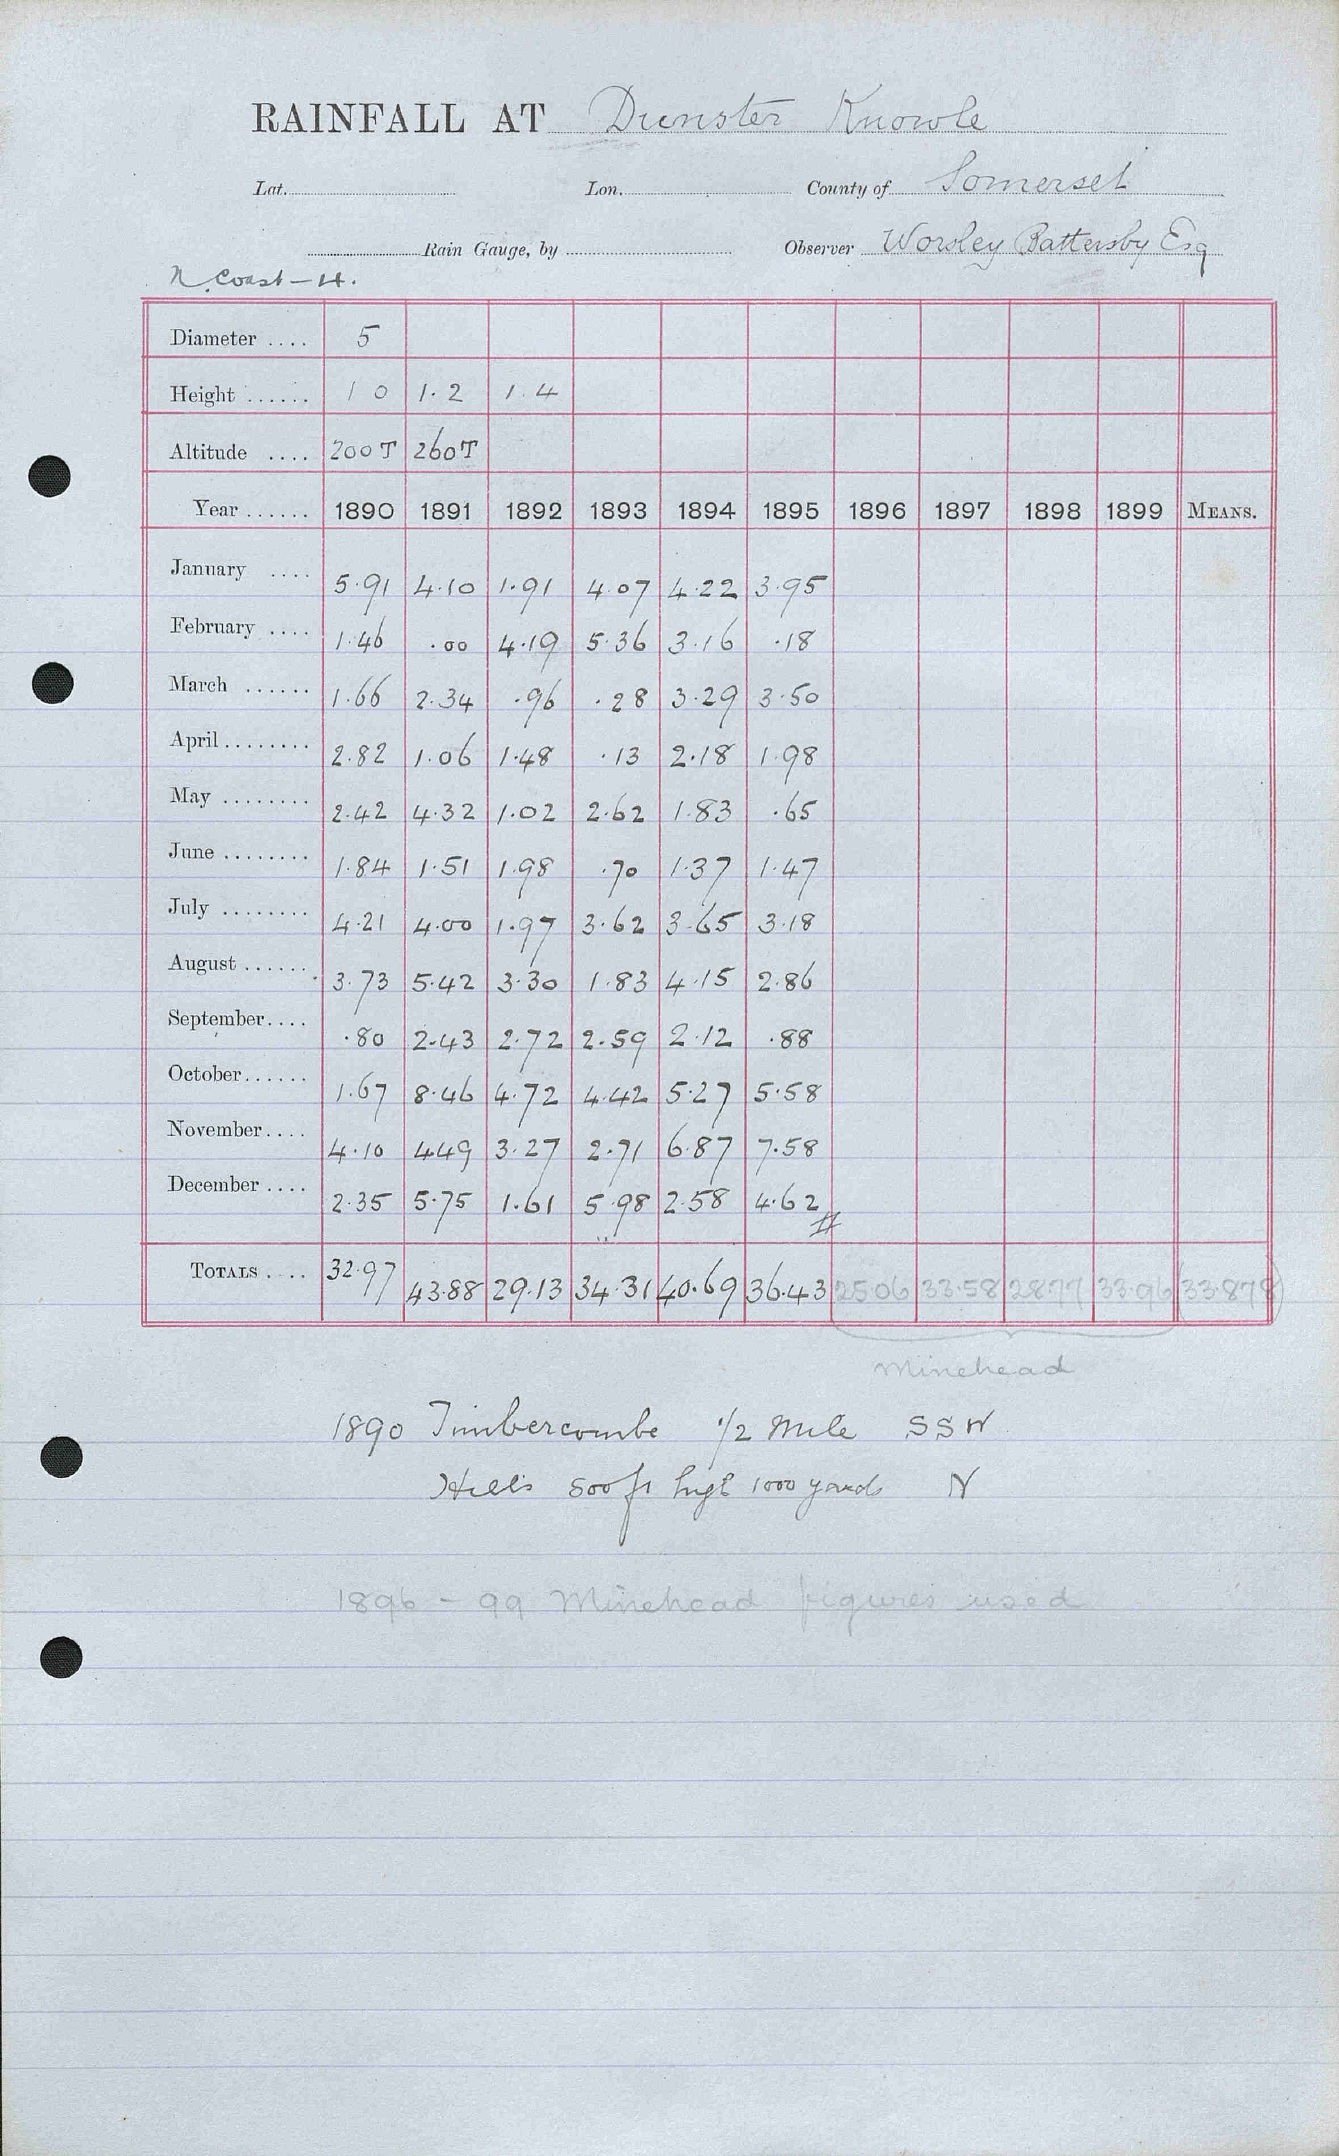 RAINFALL AT Dunster Knowle
Lat. Lon. County of Somerset
Rain Gauge, by Observer Worsley Battersby Esq
N. Coast - H.
Diameter .... 5
Height ...... 1 0 1.2 1.4
Altitude .... 200T 260T
Year ...... 1890 1891 1892 1893 1894 1895 1896 1897 1898 1899 MEANS.
January .... 5.91 4.10 1.91 4.07 4.22 3.95
February .... 1.46 .00 4.19 5.36 3.16 .18
March ...... 1.66 2.34 .96 .28 3.29 3.50
April ........ 2.82 1.06 1.48 .13 2.18 1.98
May ........ 2.42 4.32 1.02 2.62 1.83 .65
June ........ 1.84 1.51 1.98 .70 1.37 1.47
July ........ 4.21 4.00 1.97 3.62 3.65 3.18
August ...... 3.73 5.42 3.30 1.83 4.15 2.86
September.... .80 2.43 2.72 2.59 2.12 .88
October...... 1.67 8.46 4.72 4.42 5.27 5.58
November.... 4.10 4.49 3.27 2.71 6.87 7.58
December .... 2.35 5.75 1.61 5.98 2.58 4.62 #
TOTALS .... 32.97 43.88 29.13 34.31 40.69 36.43 25.06 33.58 28.77 33.96 (33.878)
Minehead
1890 Timbercombe 1/2 Mile SSW
Hills 500 ft high 1000 yards N
1896 - 99 Minehead figures used